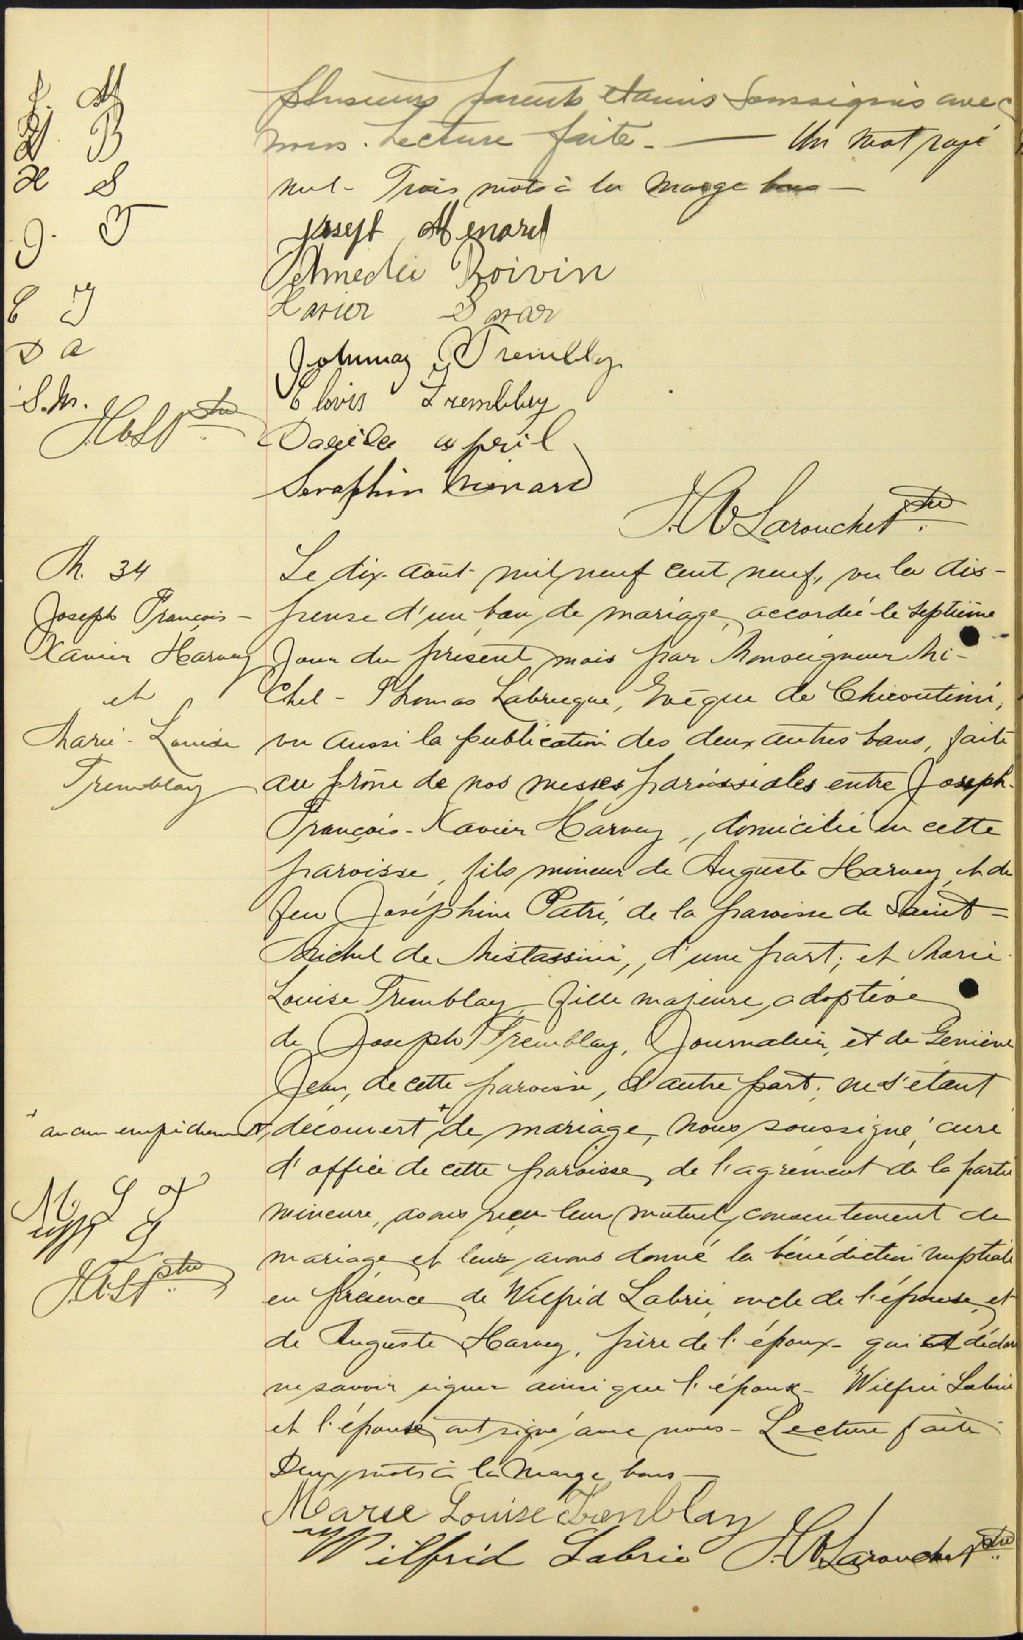 J. M
A. B
X S
J. T
C T
D A
S. M.
J.A.L. Ptre
plusieurs parents et amis soussignés avec
nous. Lecture faite. — Un mot rayé
nul - Trois mots à la marge bons —
Joseph Menard
Amedée Boivin
Xavier Savar
Johnnay Trembley
Clovis Trembley
april
Seraphin Menard
Larouche Ptre
M. 34
Joseph François-
Xavier Harvey
et
Marie-Louise
Tremblay
Le dix-août mil neuf cent neuf, vu la dis-
pense d'un ban de mariage, accordée le septième
jour du présent mois par Monseigneur Mi-
chel-Thomas Labrecque, Evêque de Chicoutimi,
vu aussi la publication des deux autres bans, faite
au prône de nos messes paroissiales entre Joseph-
François-Xavier Harvey, domicilié en cette
paroisse, fils mineur de Auguste Harvey et de
feu Joséphine Patri, de la paroisse de Saint-
Michel de Mistassini, d'une part; et Marie-
Louise Tremblay fille majeure adoptive
de Joseph Tremblay, Journalier, et de Geniève
Jean, de cette paroisse, d'autre part; ne s'étant
+ aucun empêchement, découvert + de mariage, nous soussigné, curé
d'office de cette paroisse, de l'agrément de la partie
mineure, avons reçu leur mutuel consentement de
mariage et leur avons donné la bénédiction nuptiale
en présence de Wilfrid Labrie, oncle de l'épouse, et
de Auguste Harvey, père de l'époux - qui a déclaré
ne savoir signer ainsi que l'époux - Wilfrid Labrie
et l'épouse ont signé avec nous - Lecture faite.
Deux mots à la marge bons —
M L T
W L
J.A.L. Ptre
Marie Louise Tremblay
Wilfrid Labrie Larouche Ptre